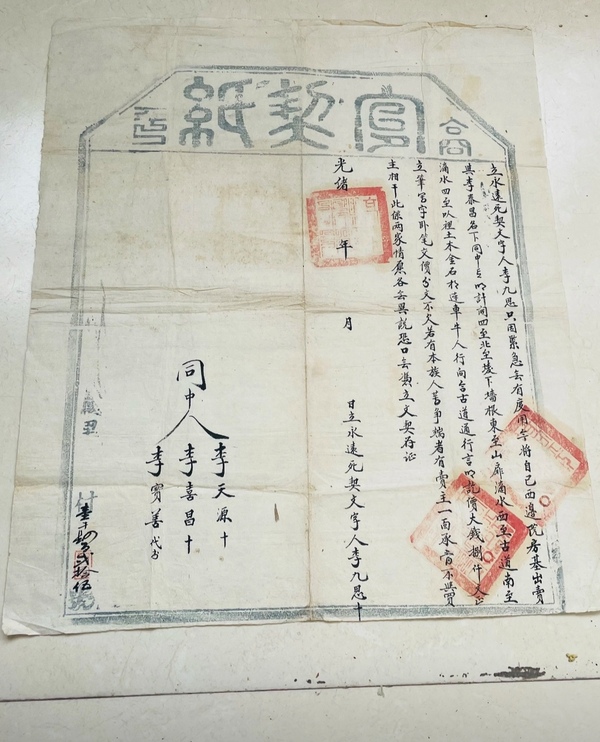 官契紙
立永遠死契文字人李九恩只因緊急無有展用今將自己西邊院房基出賣
與李泰昌名下同中言明計開四至北至坡下墻根東至山扉滴水西至古道南至
滴水四至以裡土木金石相連車牛人行向古道通行言明死價大錢捌仟文正
立筆寫字即筆交價分文不欠若有本族人等爭端者有賣主一面承當不與買
主相干此係兩家情愿各無異説恐口無憑立文契存証
光緒 年 月 日立永遠死契文字人李九恩十
同中人
李天源十
李喜昌十
李寶善代书
貳拾伍號